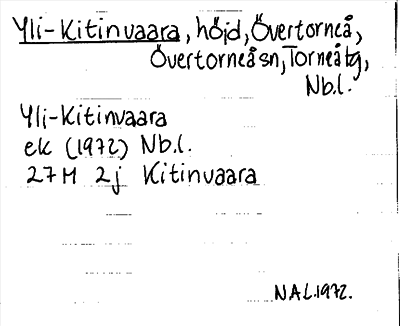 Yli-Kitinvaara, höjd, Övertorneå,
Övertorneå sn, Torneå tg,
Nb.l.
Yli-Kitinvaara
ek (1972) Nb.l.
27M 2j Kitinvaara
NAL.1972.